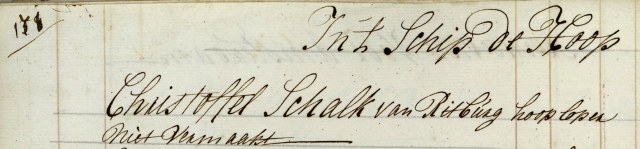 158
In't Schip De Hoop
Christoffel Schalk van Ritburg hooploper
Niet Vermaakt